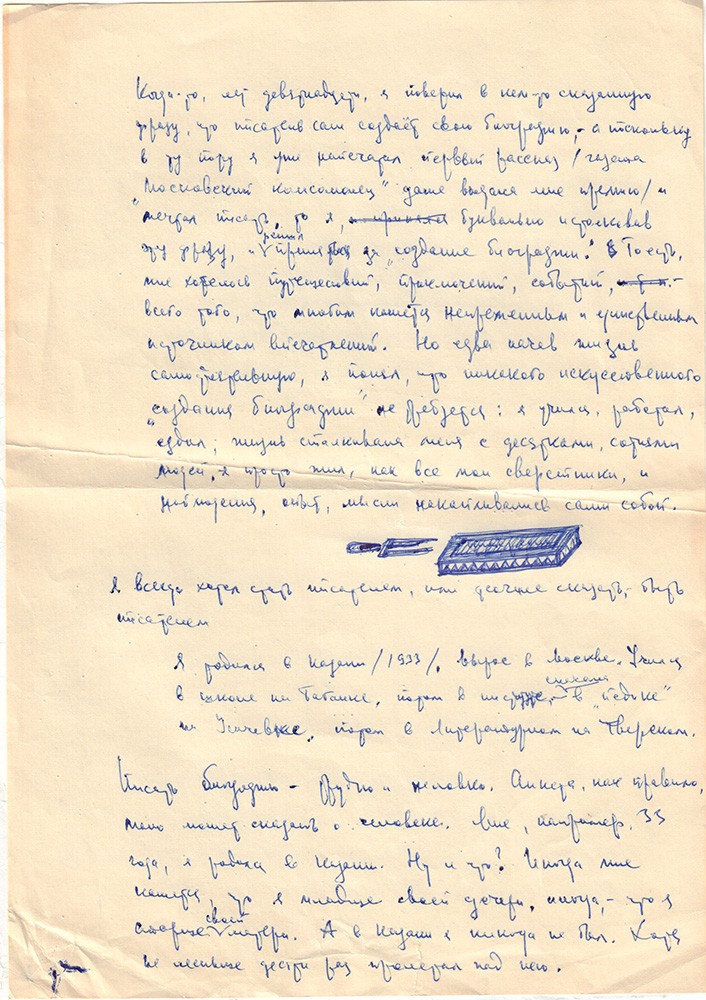 Когда-то, лет девятнадцати, я поверил в кем-то сказанную
фразу, что писатель сам создаёт свою биографию, – а поскольку
в ту пору я уже напечатал первый рассказ /газета
„Московский комсомолец" даже выдала мне премию/ и
мечтал писать, то я, буквально истолковав
эту фразу, решил „создание биографии." То есть,
мне хотелось путешествий, приключений, событий, –
всего того, что многим кажется непременным и единственным
источником впечатлений. Но едва начав жизнь
самостоятельную, я понял, что никакого искусственного
„создания биографии" не требуется: я учился, работал,
ездил; жизнь сталкивала меня с десятками, сотнями
людей, я просто жил, как все мои сверстники, и
наблюдения, опыт, мысли накапливались сами собой.
Я всегда хотел стать писателем, или точнее сказать, – быть
писателем
Я родился в Казани /1933/, вырос в Москве. Учился
в школе на Таганке, потом в „педине"
на Усачевке, потом в Литературном на Тверском.
Писать биографию – трудно и неловко. Анкета, как правило,
мало может сказать о человеке. Мне, например, 33
года, я родился в Казани. Ну и что? Иногда мне
кажется, что я младше своей дочери, иногда, – что я
старше своей матери. А в Казани я никогда не был. Хотя
не меньше десяти раз пролетал над нею.